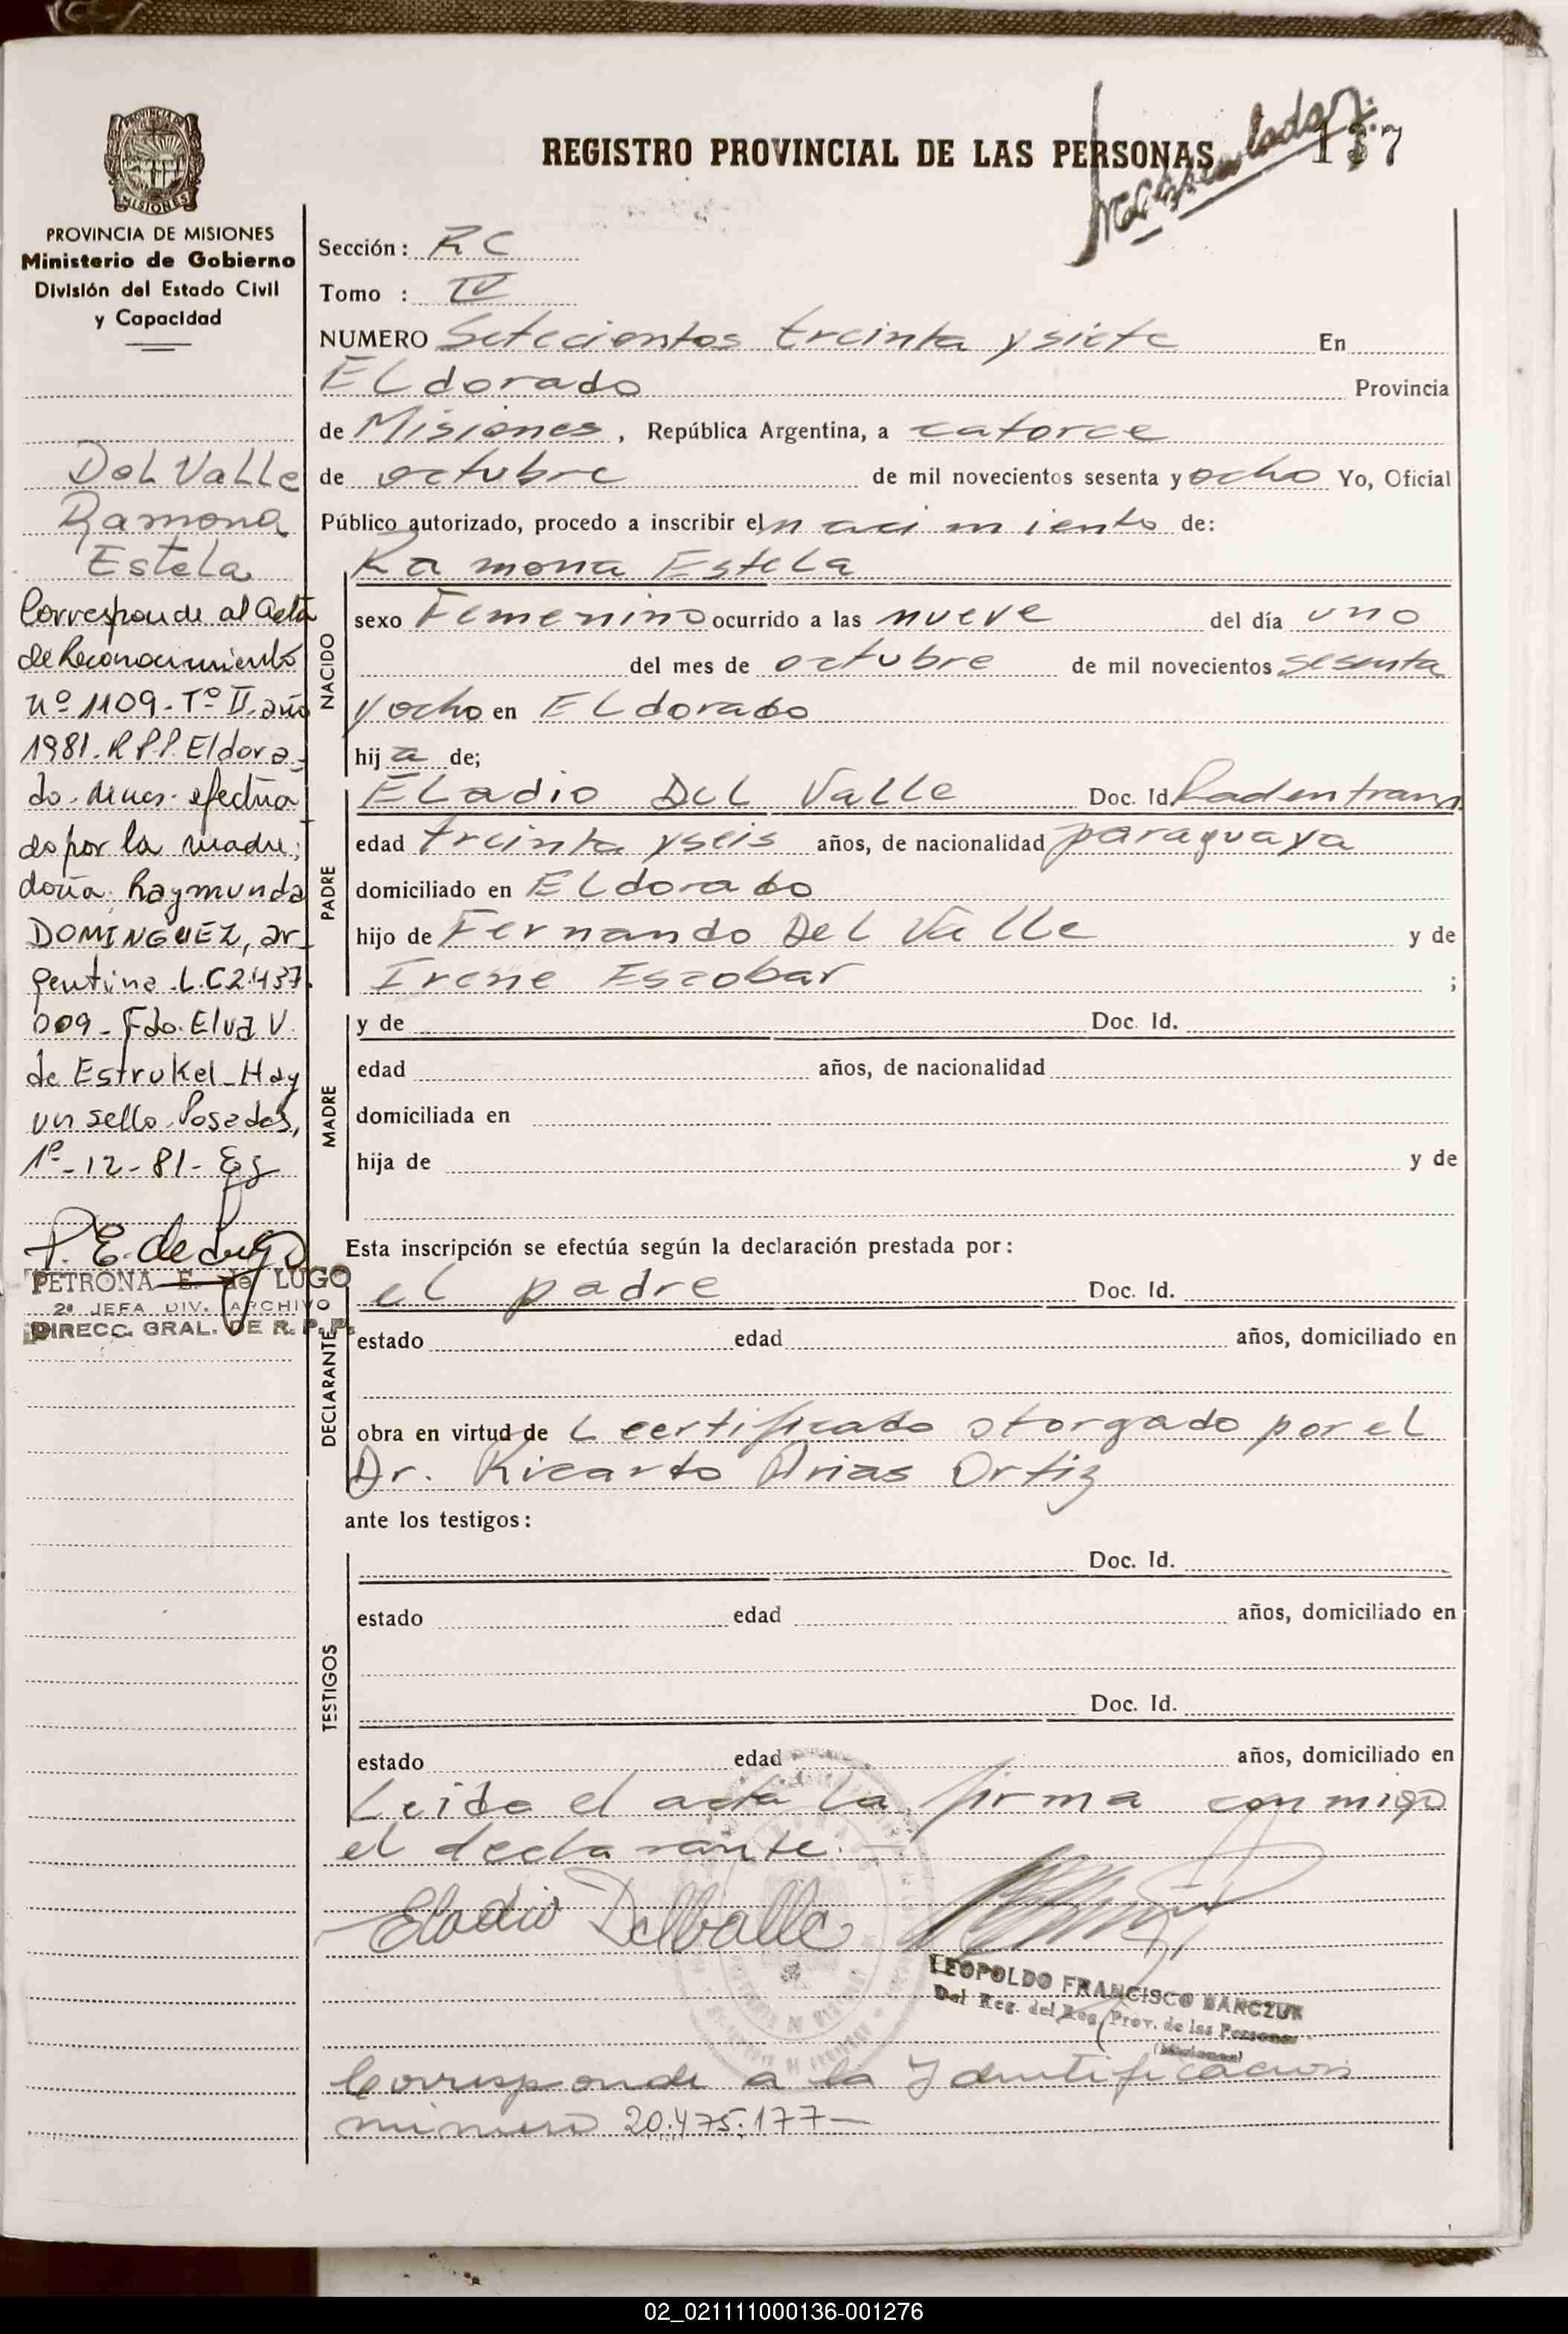 REGISTRO PROVINCIAL DE LAS PERSONAS
137
PROVINCIA DE
MISIONES
PROVINCIA DE MISIONES
Ministerio de Gobierno
División del Estado Civil
y Capacidad
Del Valle
Ramona
Estela
Corresponde al Acta
de Reconocimiento
nº 1109-Tº II. año
1981. R.P.P. Eldora-
do. efectua
do por la madre;
doña Raymunda
DOMINGUEZ, ar-
gentina L.C 2.437.
009- Fdo. Elva V.
de Estrukel- Hay
un sello. Posadas,
1º-12-81-
P. E. de Lugo
PETRONA E. de LUGO
2ª JEFA DIV. ARCHIVO
DIRECC. GRAL. DE R. P. P.
Sección: RC
Tomo : IV
NUMERO Setecientos treinta y siete En
ELdorado Provincia
de Misiones, República Argentina, a catorce
de octubre de mil novecientos sesenta y ocho Yo, Oficial
Público autorizado, procedo a inscribir el nacimiento de:
Ramona Estela
NACIDO
sexo Femenino ocurrido a las nueve del día uno
del mes de octubre de mil novecientos sesenta
y ocho en ELdorado
hij a de;
PADRE
ELadio DeL Valle Doc. Id. Rad en tram
edad treinta y seis años, de nacionalidad paraguaya
domiciliado en ELdorado
hijo de Fernando DeL Valle y de
Irene Escobar ;
MADRE
y de Doc. Id.
edad años, de nacionalidad
domiciliada en
hija de y de
Esta inscripción se efectúa según la declaración prestada por:
DECLARANTE
el padre Doc. Id.
estado edad años, domiciliado en
obra en virtud de L certificado otorgado por el
Dr. Ricardo Arias Ortiz
ante los testigos:
TESTIGOS
Doc. Id.
estado edad años, domiciliado en
Doc. Id.
estado edad años, domiciliado en
Leida el acta La firma conmigo
el declarante.-
Eladio Delballe
LEOPOLDO FRANCISCO BANCZUK
Del Reg. del Reg. Prov. de las Personas
(Misiones)
Corresponde a la Identificacion
numero 20.475.177-
02_021111000136-001276